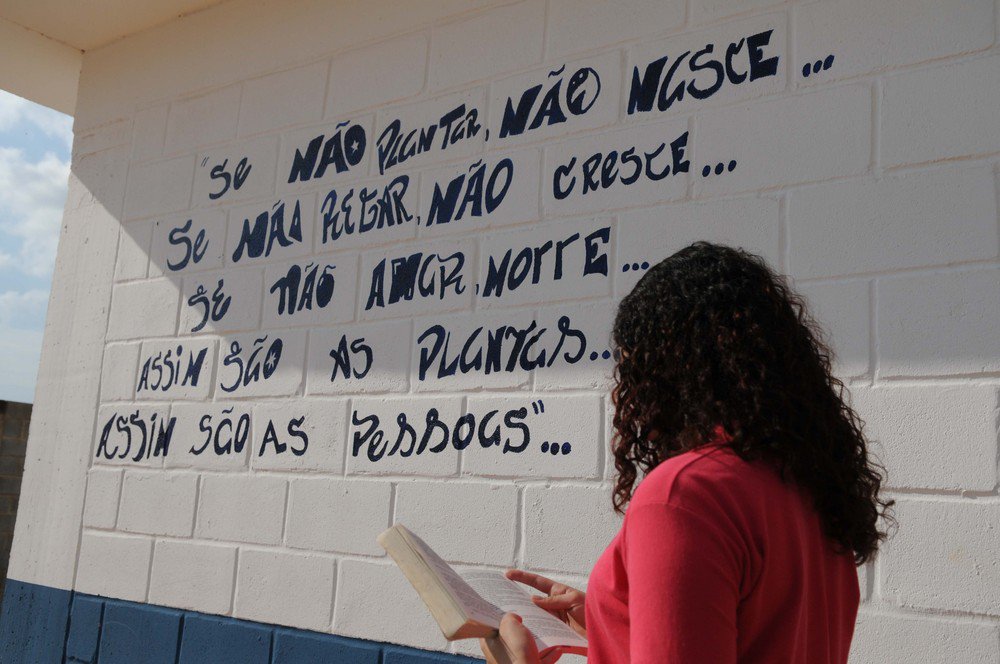 "SE NÃO PLANTAR, NÃO NASCE...
SE NÃO REGAR, NÃO CRESCE...
SE NÃO AMAR, MORRE...
ASSIM SÃO AS PLANTAS...
ASSIM SÃO AS PESSOAS"...